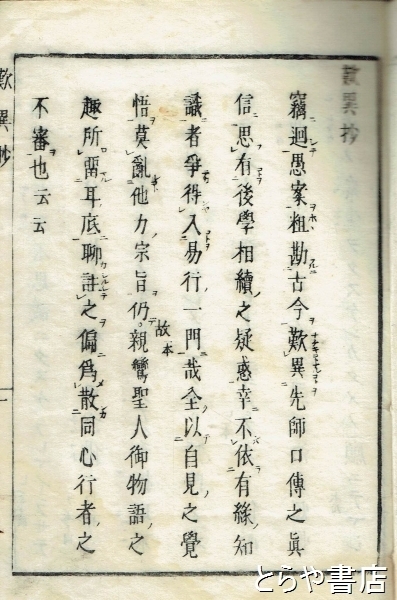 竊廻愚案粗勘古今歎異先師口傳之眞
信思有後學相續之疑惑幸不依有緣知
識者爭得入易行一門哉全以自見之覺
悟莫亂他力宗旨仍故本親鸞聖人御物語之
趣所留耳底聊註之偏爲散同心行者之
不審也云云
歎異抄
とらや書店